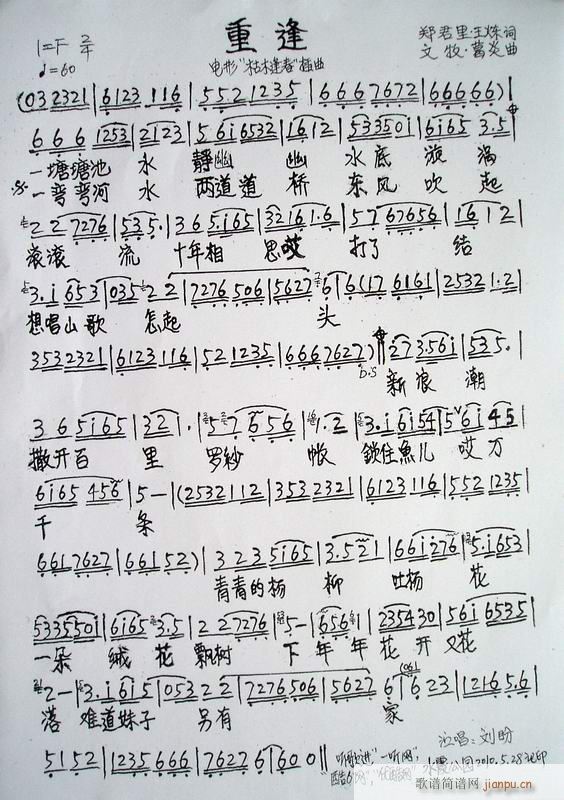 重逢
1=F 2/4
♩=60
电影"枯木逢春"插曲
郑君里·王炼词
文牧·葛炎曲
(03 2321 | 6123 116 | 552 1235 | 666 7672 | 66666) |
666 1253 | 2123 | 56i 6532 | 1612 | 533501 | 6i65 3.5 |
一塘塘池 水 静幽 幽 水底 漩涡
一弯弯河 水 两道道 桥 东风 吹起
22 7276 | 535. | 36 5.i65 | 3216 1.6 | 57 67656 | 1612 |
滚滚 流 十年相 思哎 打了 结
3.i 653 | 035 22 | 7276 506 | 5627 | 6 | 6(17 6161 | 2532 1.2 |
想唱山歌 怎起 头
353 2321 | 6123 116 | 52 1235 | 666 7627) | 27 3.56i | 535. |
D.S
新浪 潮
36 5i65 | 321. | 57 656 | 1.2 | 3.i 6i54 | 56i 45 |
撒开百 里 罗纱 帐 鎖住魚儿 哎万
6i65 456 | 5 — | (2532 112 | 353 2321 | 6123 116 | 552 1235 |
千 条
661 7627 | 661 52) | 323 5i65 | 3.521 | 66i 276 | 5.i653 |
青青的杨 柳 吐杨 花
5335501 | 6i65 3.5 | 22 7276 | 5 — | 656 1 | 235430 | 56i 6535 |
一朵 绒花 飘树 下 年年 花开 又花
2 — | 3.i 6i5 | 053 22 | 7276 506 | 5627 | 6 | 6 23 | 1216 5.6 |
落 难道妹子 另有 家
5152 | 1235 666 | 7627 6 | 6 0 0 ‖
演唱:刘盼
2010.5.28
歌谱简谱网
jianpu.cn